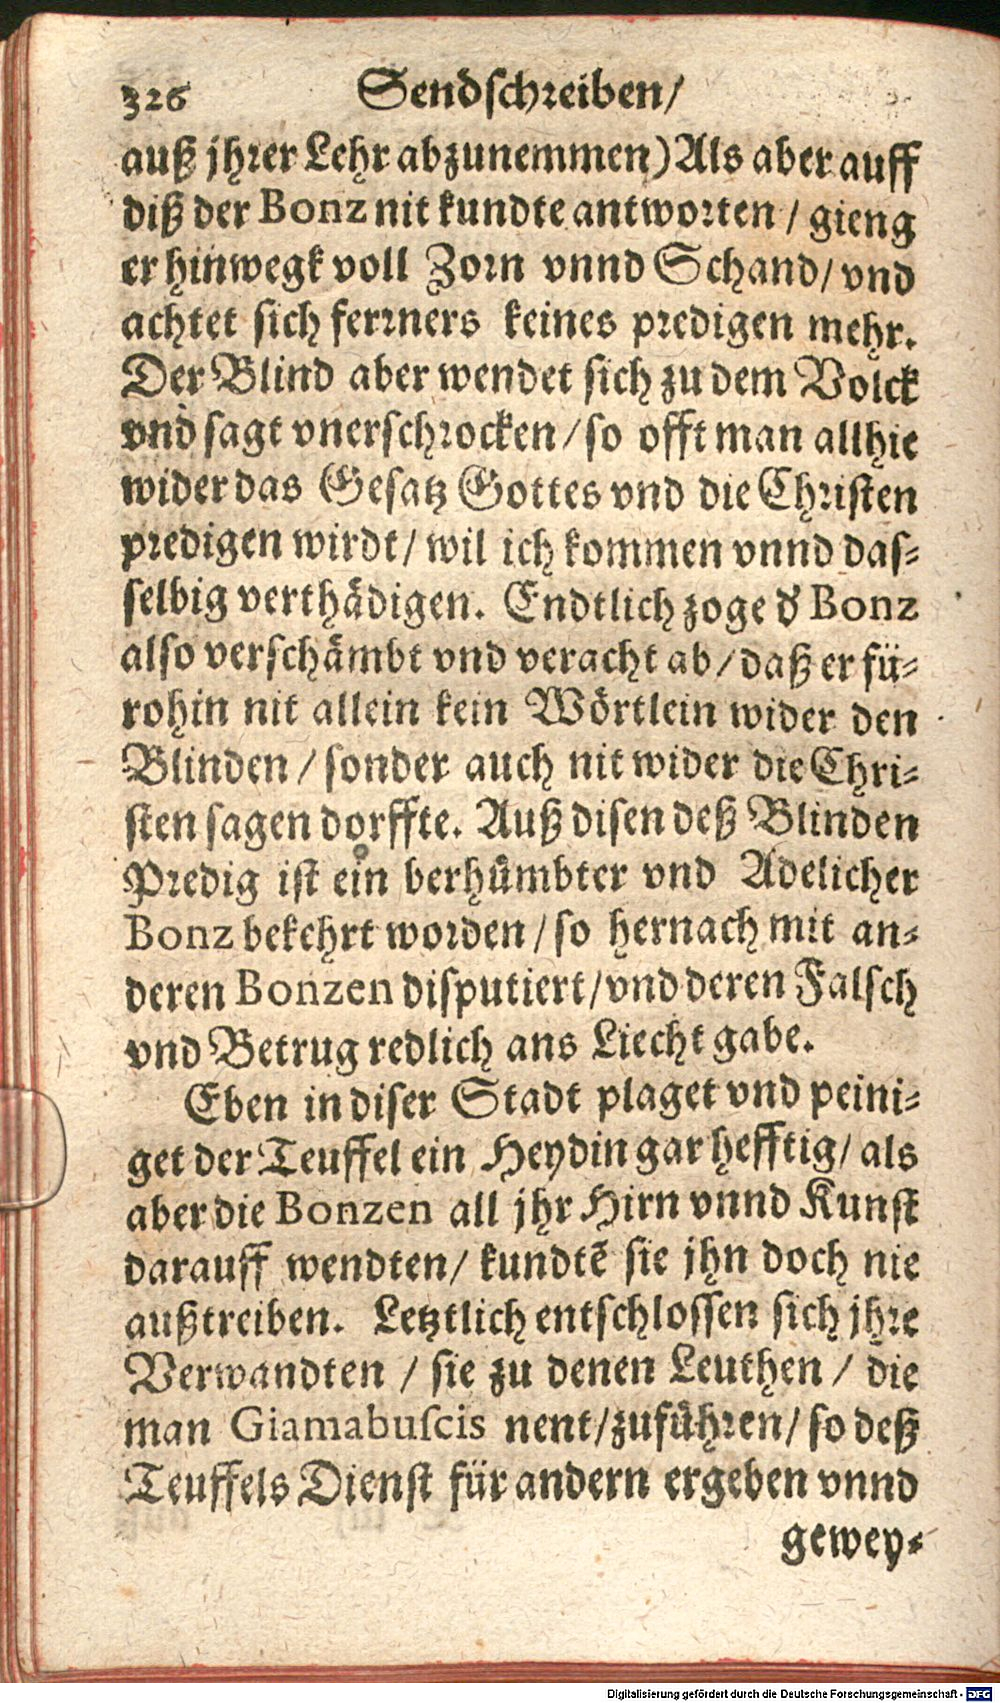 326 Sendschreiben/
auß jhrer Lehr abzunemmen) Als aber auff
diß der Bonz nit kundte antworten / gieng
er hinwegk voll Zorn vnnd Schand/ vnd
achtet sich ferrners keines predigen mehr.
Der Blind aber wendet sich zu dem Volck
vnd sagt vnerschrocken / so offt man allhie
wider das Gesatz Gottes vnd die Christen
predigen wirdt/ wil ich kommen vnnd das-
selbig verthädigen. Endtlich zoge d' Bonz
also verschämbt vnd veracht ab/ daß er fü-
rohin nit allein kein Wörtlein wider den
Blinden / sonder auch nit wider die Chri-
sten sagen dorffte. Auß disen deß Blinden
Predig ist ein berhůmbter vnd Adelicher
Bonz bekehrt worden / so hernach mit an-
deren Bonzen disputiert/ vnd deren Falsch
vnd Betrug redlich ans Liecht gabe.
Eben in diser Stadt plaget vnd peini-
get der Teuffel ein Heydin gar hefftig/ als
aber die Bonzen all jhr Hirn vnnd Kunst
darauff wendten/ kundtē sie jhn doch nie
außtreiben. Letztlich entschlossen sich jhre
Verwandten / sie zu denen Leuthen / die
man Giamabuscis nent/ zufůhren/ so deß
Teuffels Dienst für andern ergeben vnnd
gewey-
Digitalisierung gefördert durch die Deutsche Forschungsgemeinschaft - DFG